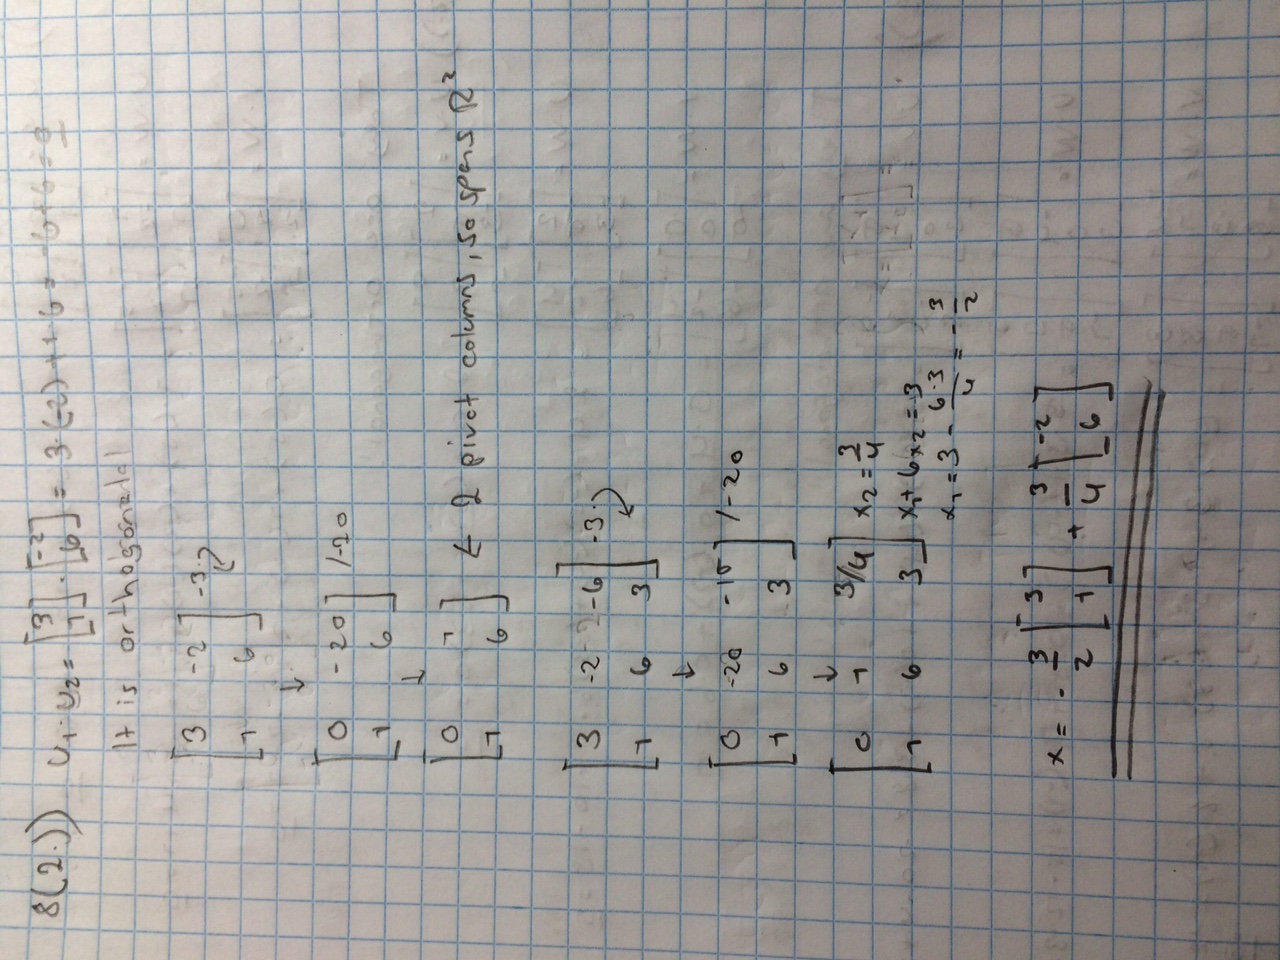 8(2.)) u₁·u₂ = [3 1] · [-2 6] = 3·(-2) + 1·6 = -6+6 = 0
It is orthogonal
[3 -2] -3·
[1 6]
↓
[0 -20] /-20
[1 6]
↓
[0 1]
[1 6] ← 2 pivot columns, so spans R²
[3 -2 -6] -3·
[1 6 3]
↓
[0 -20 -15] /-20
[1 6 3]
↓
[0 1 3/4] x₂ = 3/4
[1 6 3] x₁+6x₂ = 3
x₁ = 3 - 6·3/4 = -3/2
x = -3/2 [3 1] + 3/4 [-2 6]